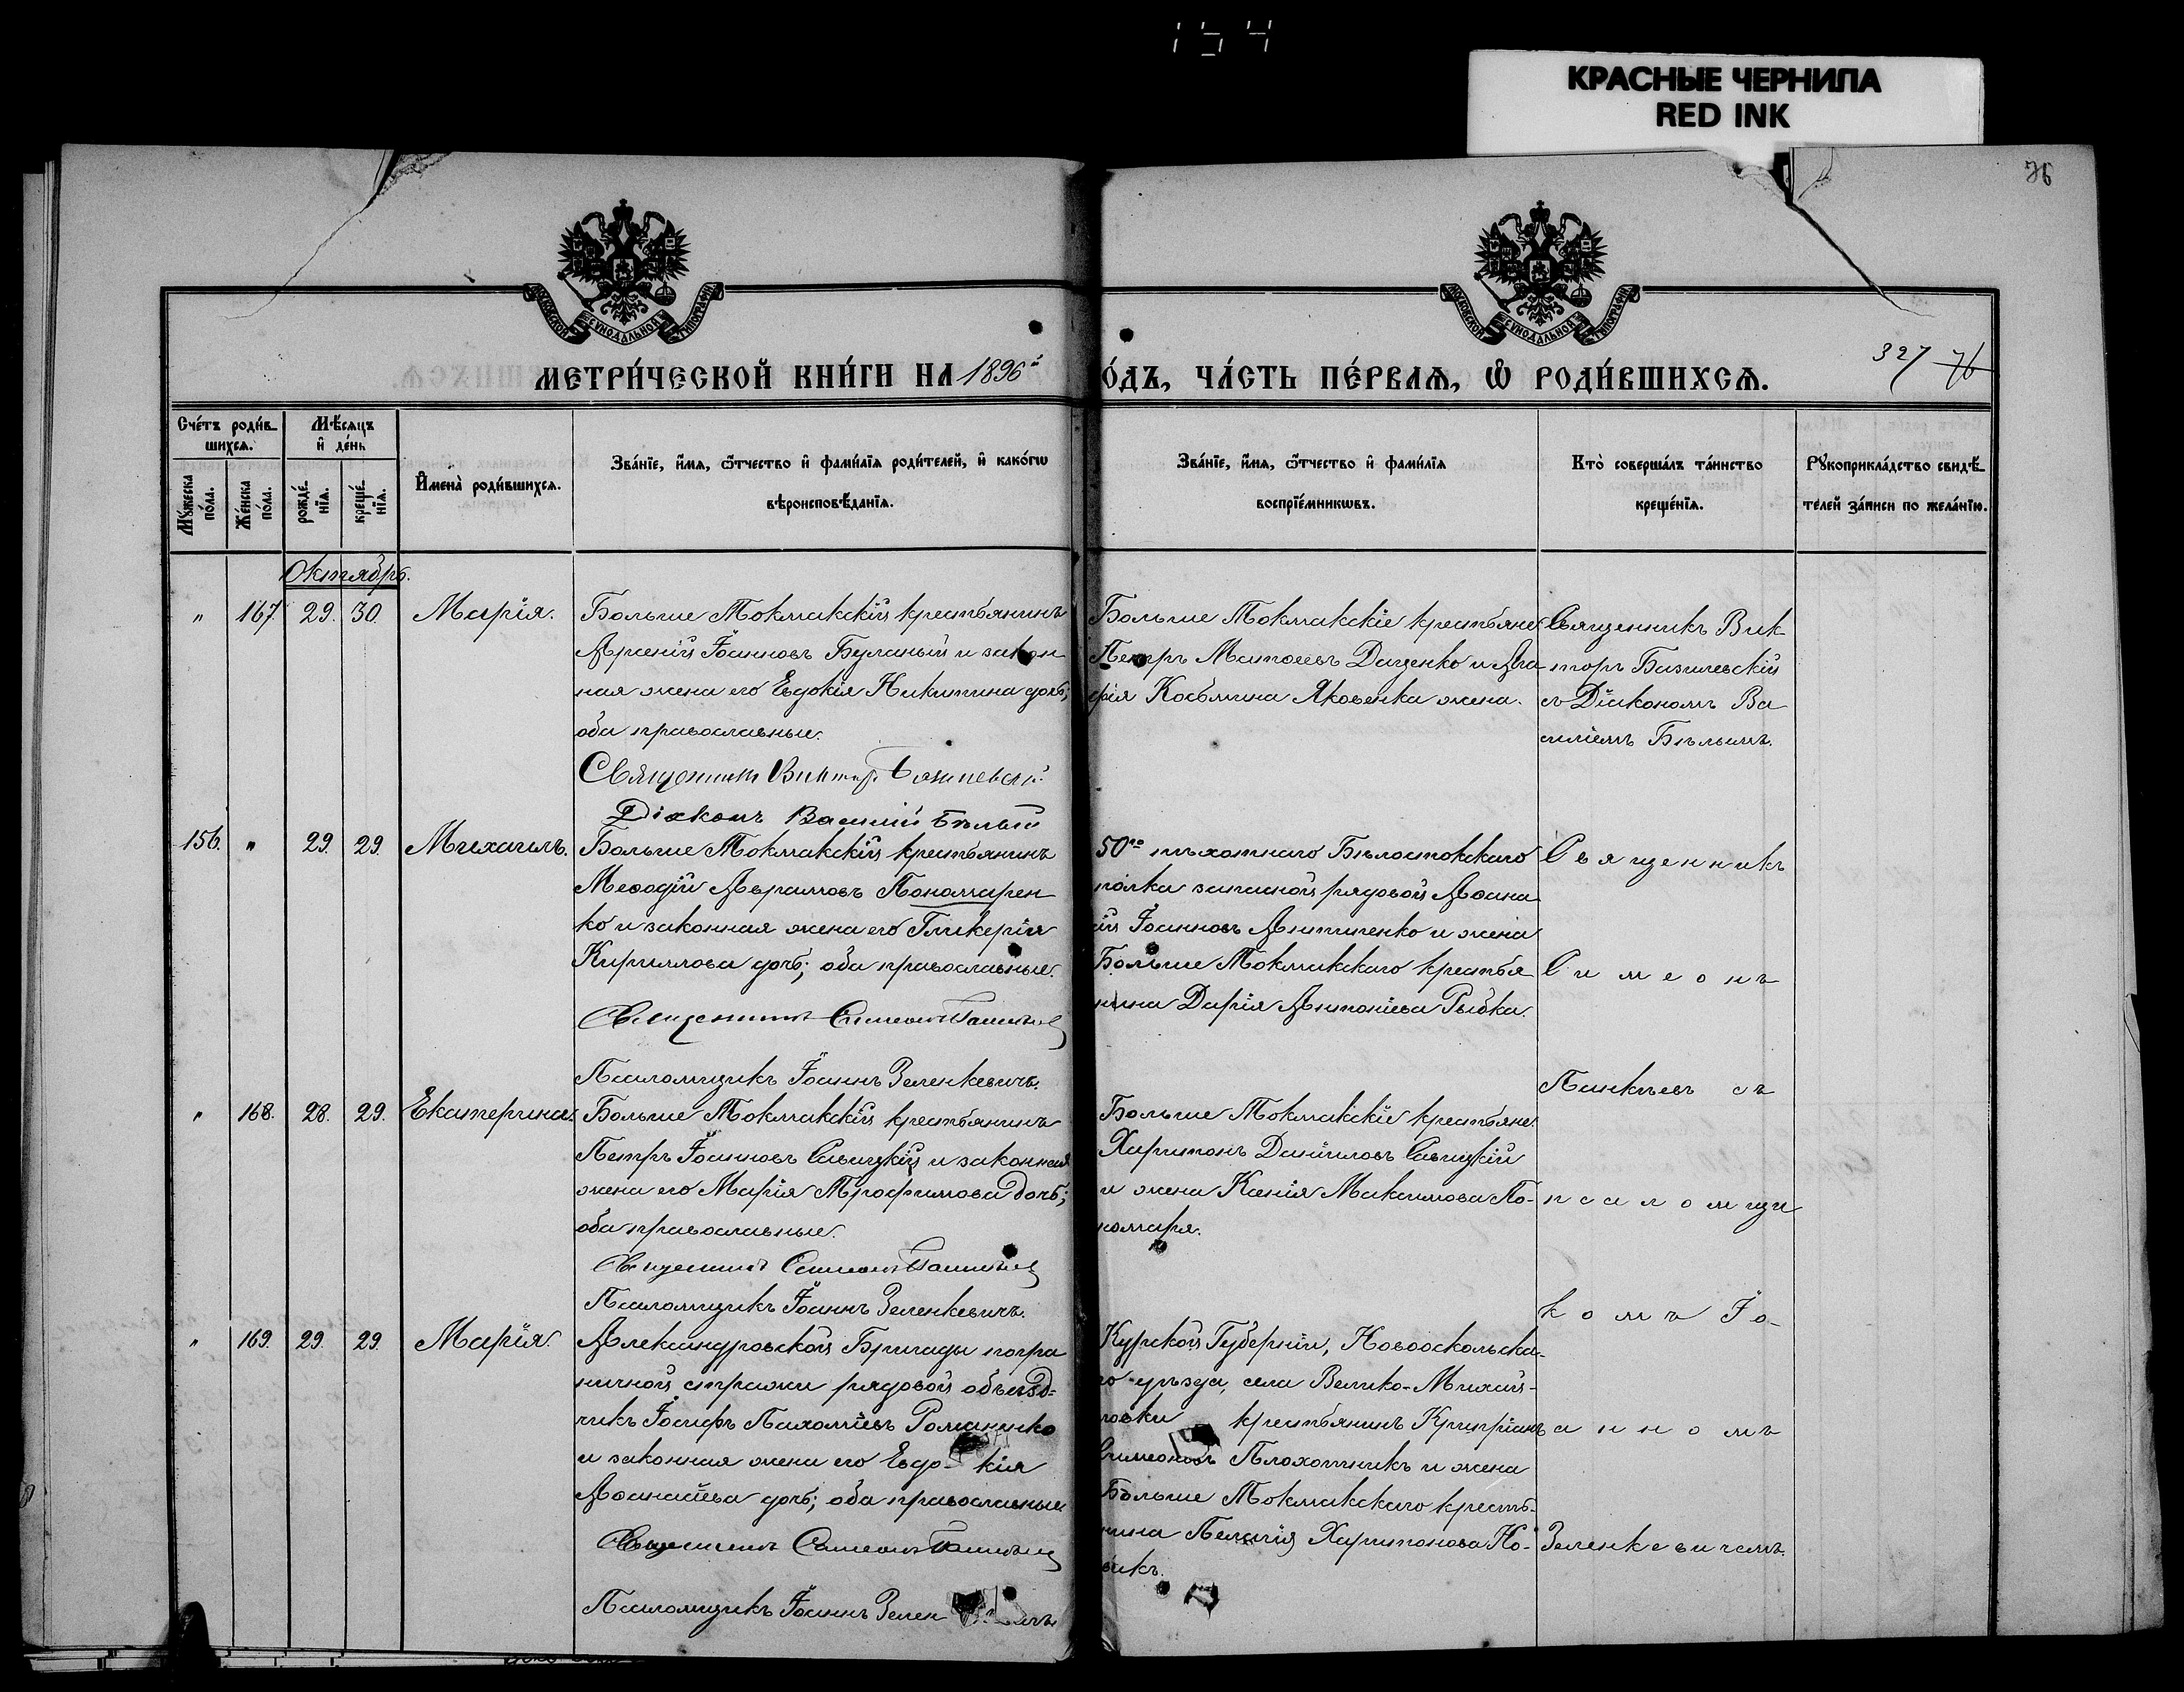 154
КРАСНЫЕ ЧЕРНИЛА
RED INK
76
МОСКОВСКОЙ СѴНОДАЛЬНОЙ ТИПОГРАФІИ
МОСКОВСКОЙ СѴНОДАЛЬНОЙ ТИПОГРАФІИ
МЕТРИ́ЧЕСКОЙ КНИ́ГИ НА 1896й
О́ДЪ, ЧА́СТЬ ПЕ́РВАѦ, Ѽ РОДИ́ВШИХСѦ.
327 76
Сче́тъ роди́в-
шихсѧ.
Мꙋ́жеска по́ла.
Же́нска по́ла.
Мѣ́сѧцъ
и҆ де́нь
рожде́нїѧ.
креще́нїѧ.
И҆мена̀ роди́вшихсѧ.
Зва́нїе, и҆́мѧ, ѻ҆́тчество и҆ фами́лїѧ роди́телей, и҆ како́гѡ
вѣроисповѣ́данїѧ.
Зва́нїе, и҆́мѧ, ѻ҆́тчество и҆ фами́лїѧ
воспрїе́мникѡвъ.
Кто̀ соверша́лъ та́инство
креще́нїѧ.
Рꙋкоприкла́дство свидѣ́-
телей за́писи по жела́нїю.
Октябрь.
" 167. 29. 30. Марія.
Больше Токмакскій крестьянинъ
Арсеній Іоанновъ Буланый и закон
ная жена его Евдокія Никитина дочь;
оба православные.
Священникъ Викторъ Базилевскій
Діаконъ Василій Бѣлый
Больше Токмакскіе крестьяне
Петръ Матѳеевъ Даценко и Да
рія Косьмина Яковенка жена.
Священникъ Вик
торъ Базилевскій
съ Діакономъ Ва
силіемъ Бѣлымъ.
156. " 29. 29. Михаилъ.
Больше Токмакскій крестьянинъ
Меѳодій Аврамовъ Пономарен
ко и законная жена его Гликерія
Кириллова дочь; оба православные.
Священникъ Симеонъ Панкѣевъ
Псаломщикъ Іоаннъ Зеленкевичъ.
50го пѣхотнаго Бѣлостокскаго
полка запасной рядовой Аѳана
ій Іоанновъ Антипенко и жена
Больше Токмакскаго крестья
нина Дарія Антоніева Рыбка.
Священникъ
Симеонъ
Панкѣевъ съ
" 168. 28. 29. Екатерина.
Больше Токмакскій крестьянинъ
Петръ Іоанновъ Савицкій и законная
жена его Марія Трофимова дочь;
оба православные.
Священникъ Симеонъ Панкѣевъ
Псаломщикъ Іоаннъ Зеленкевичъ.
Больше Токмакскіе крестьяне
Харитонъ Даніиловъ Савицкій
и жена Ксенія Максимова По-
номаря.
псаломщи
комъ Іо-
" 169. 29. 29. Марія.
Александровской Бригады погра
ничной стражи рядовой объѣзд-
чикъ Іосифъ Пахоміевъ Романенко
и законная жена его Евдо- кія
Аѳанасіева дочь; оба православные.
Священникъ Симеонъ Панкѣевъ
Псаломщикъ Іоаннъ Зелен ичъ
Курской Губерніи, Новооскольска-
го уѣзда, села Велико-Михай-
ловки крестьянинъ Кипріянъ
Симеоновъ Плохотникъ и жена
Больше Токмакскаго кресть-
нина Пелагія Харитонова Но-
викъ.
анномъ
Зеленкевичемъ.